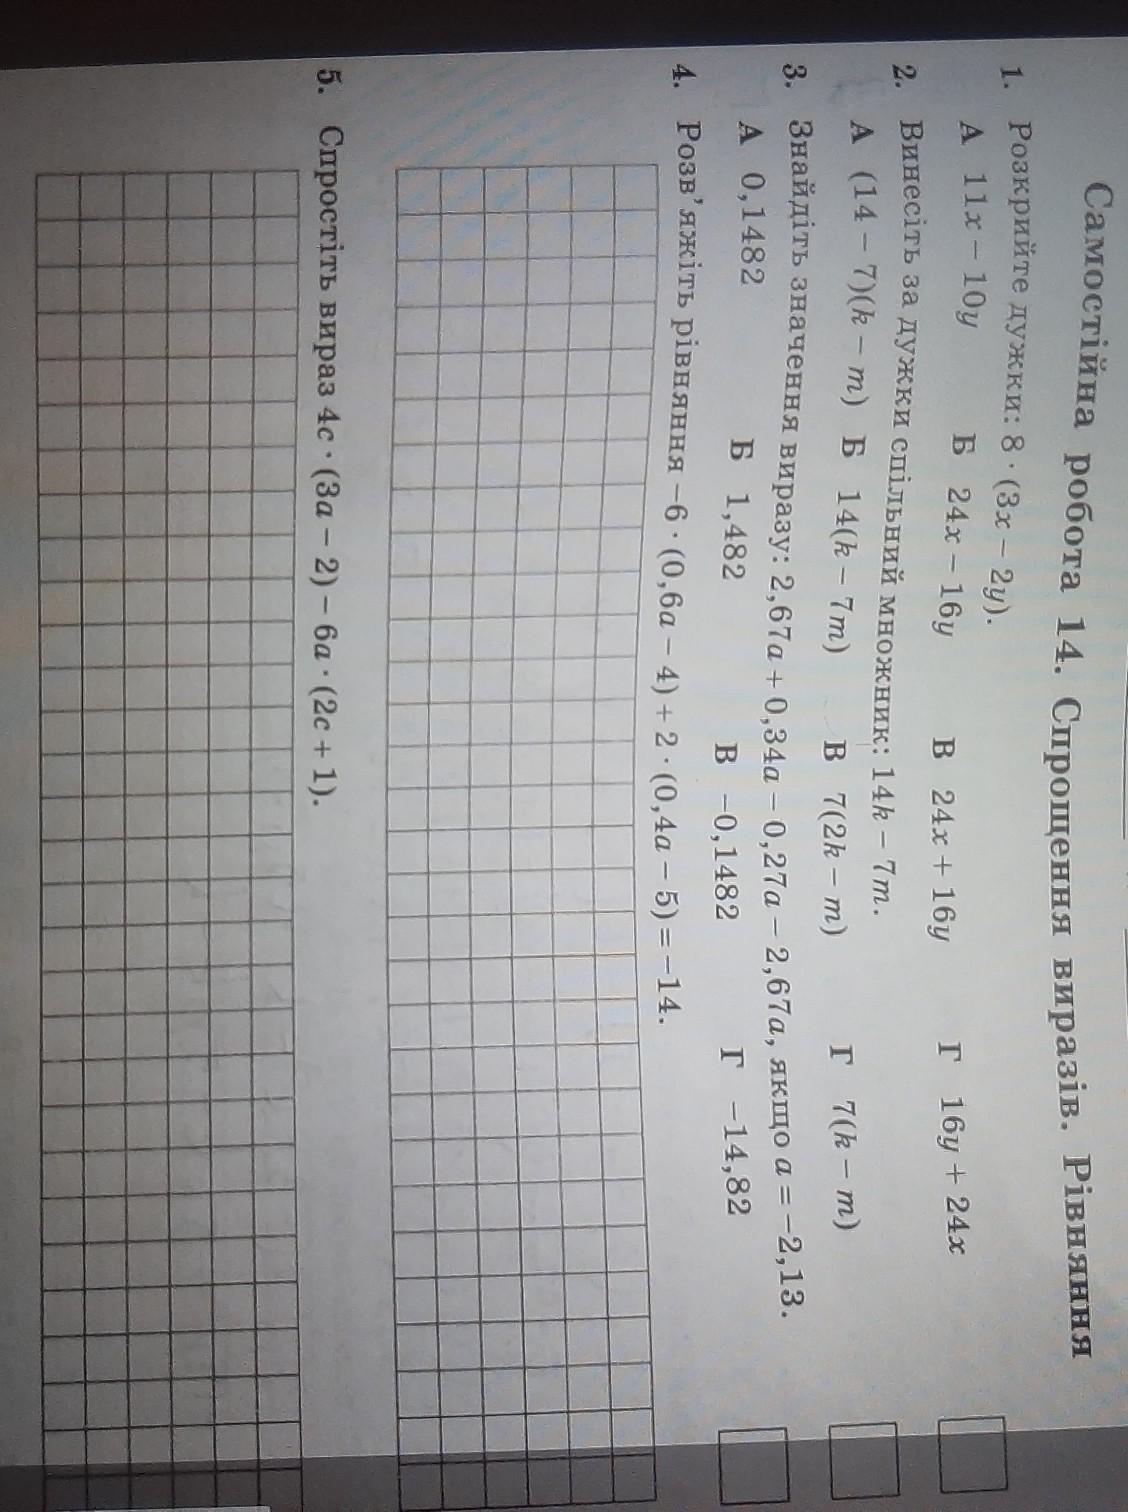 Самостійна робота 14. Спрощення виразів. Рівняння
1. Розкрийте дужки: 8 · (3x – 2y).
А 11x – 10y Б 24x – 16y В 24x + 16y Г 16y + 24x
2. Винесіть за дужки спільний множник: 14k – 7m.
А (14 – 7)(k – m) Б 14(k – 7m) В 7(2k – m) Г 7(k – m)
3. Знайдіть значення виразу: 2,67a + 0,34a – 0,27a – 2,67a, якщо a = –2,13.
А 0,1482 Б 1,482 В –0,1482 Г –14,82
4. Розв’яжіть рівняння –6 · (0,6a – 4) + 2 · (0,4a – 5) = –14.
5. Спростіть вираз 4c · (3a – 2) – 6a · (2c + 1).